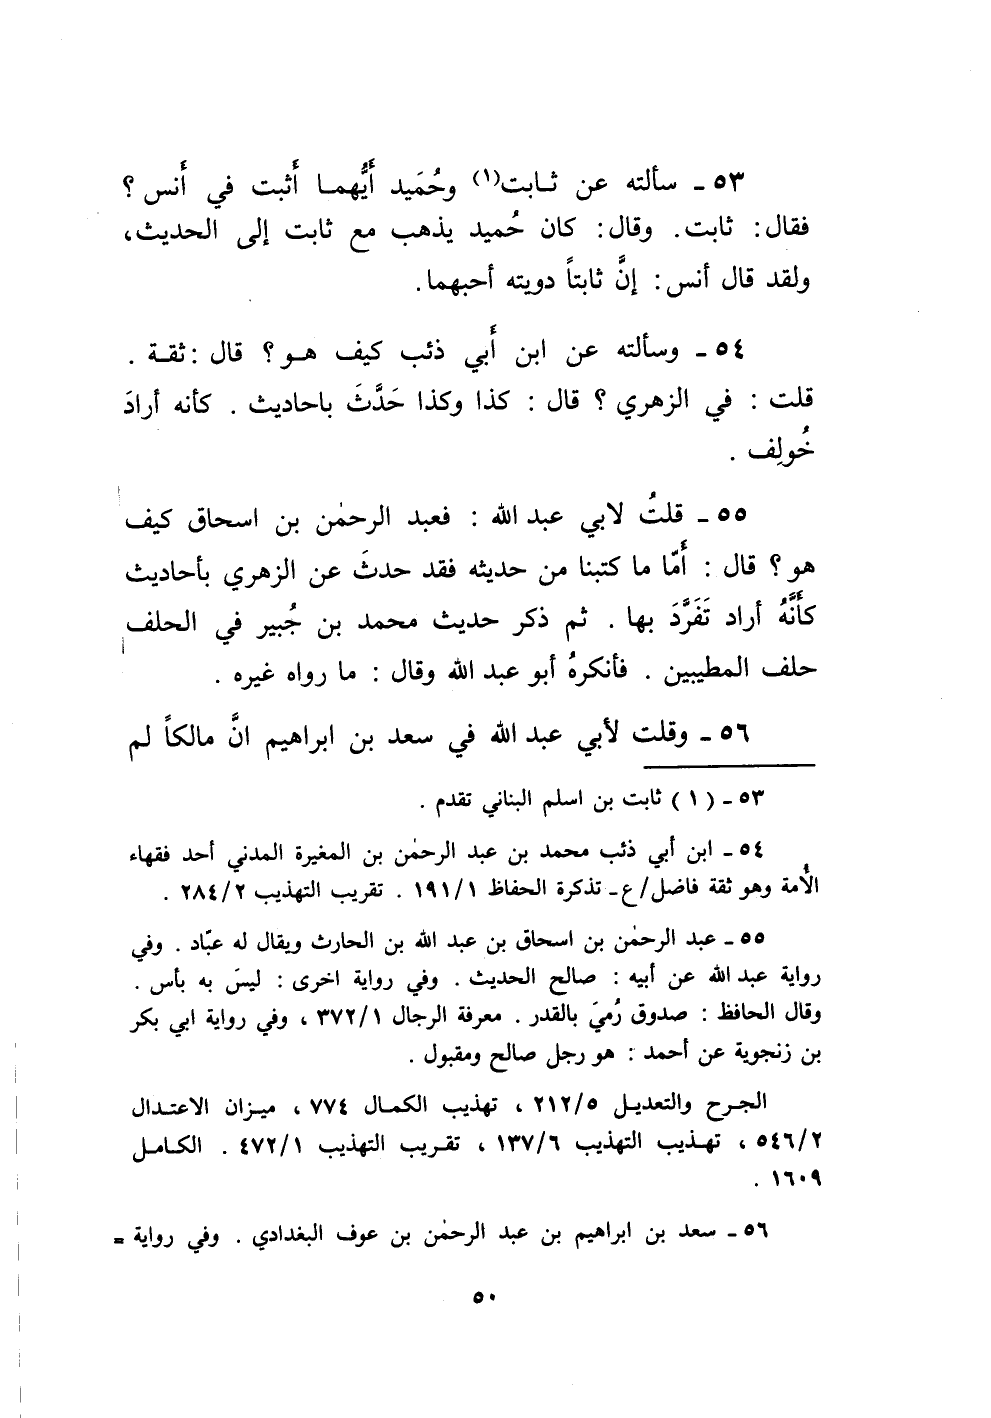 ٥٣ - سألته عن ثابت(١) وحُمَيد أَيُّهما أَثبت في أَنس ؟
فقال: ثابت. وقال: كان حُميد يذهب مع ثابت إلى الحديث،
ولقد قال أنس: إنَّ ثابتاً دويته أحبهما.
٥٤ - وسألته عن ابن أَبي ذئب كيف هو؟ قال : ثقة .
قلت : في الزهري ؟ قال : كذا وكذا حَدَّثَ باحاديث . كأنه أرادَ
خُولِف .
٥٥ - قلتُ لابي عبد الله : فعبد الرحمٰن بن اسحاق كيف
هو؟ قال : أَمّا ما كتبنا من حديثه فقد حدثَ عن الزهري بأحاديث
كأَنَّهُ أراد تَفَرَّدَ بها . ثم ذكر حديث محمد بن جُبير في الحلف
حلف المطيبين . فأنكرهُ أبو عبد الله وقال : ما رواه غيره .
٥٦ - وقلت لأبي عبد الله في سعد بن ابراهيم انَّ مالكاً لم
٥٣ - (١) ثابت بن اسلم البناني تقدم .
٥٤ - ابن أبي ذئب محمد بن عبد الرحمٰن بن المغيرة المدني أحد فقهاء
الأُمة وهو ثقة فاضل/ع - تذكرة الحفاظ ١٩١/١ . تقريب التهذيب ٢٨٤/٢ .
٥٥ - عبد الرحمٰن بن اسحاق بن عبد الله بن الحارث ويقال له عبّاد . وفي
رواية عبد الله عن أبيه : صالح الحديث . وفي رواية اخرى : ليسَ به بأس .
وقال الحافظ : صدوق رُميَ بالقدر . معرفة الرجال ٣٧٢/١ ، وفي رواية ابي بكر
بن زنجوية عن أحمد : هو رجل صالح ومقبول .
الجرح والتعديل ٢١٢/٥ ، تهذيب الكمال ٧٧٤ ، ميزان الاعتدال
٥٤٦/٢ ، تهذيب التهذيب ١٣٧/٦ ، تقريب التهذيب ٤٧٢/١ . الكامل
١٦٠٩ .
٥٦ - سعد بن ابراهيم بن عبد الرحمٰن بن عوف البغدادي . وفي رواية =
٥٠